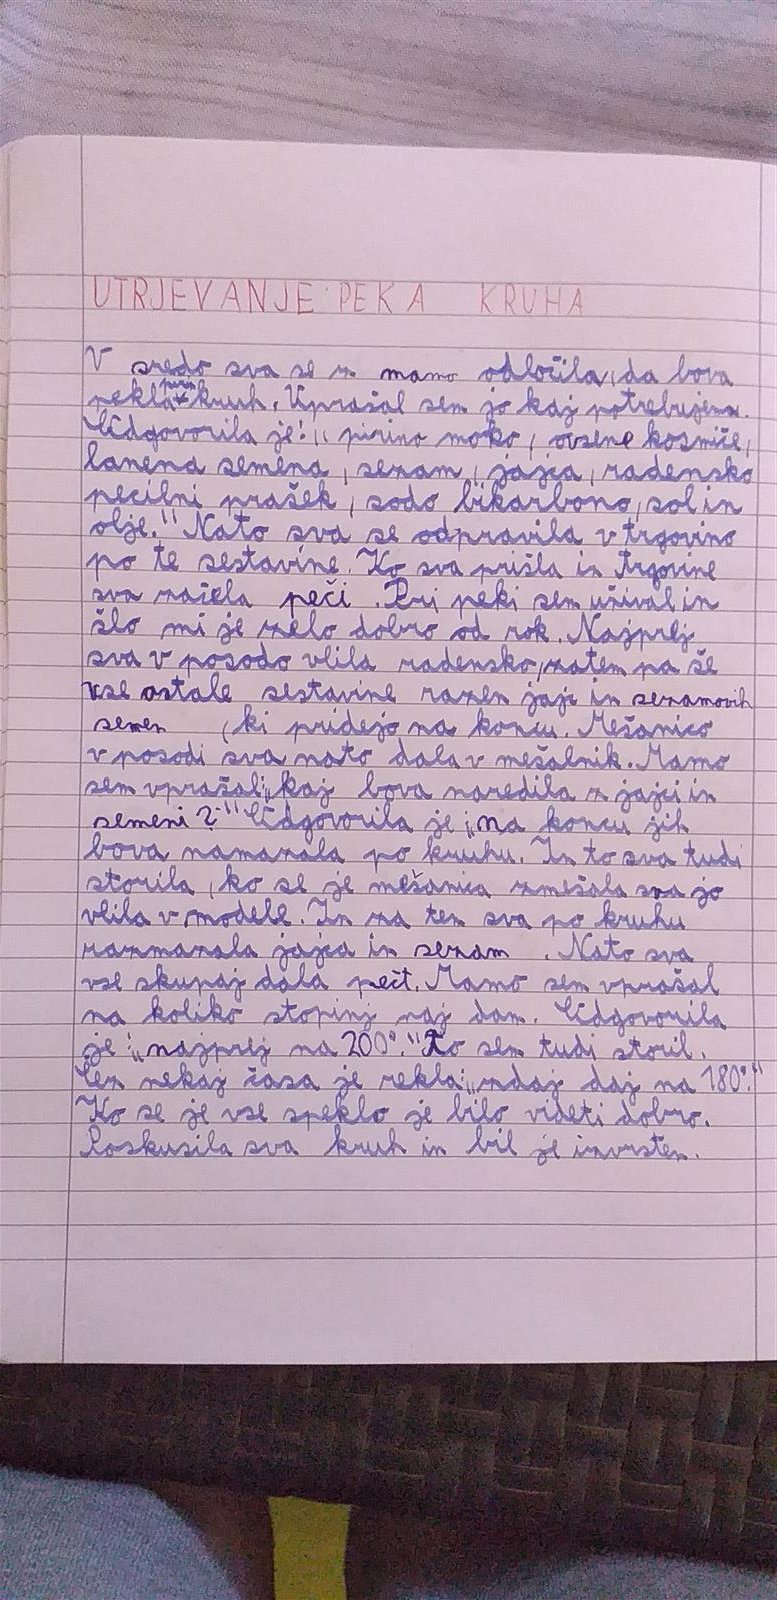 UTRJEVANJE: PEKA KRUHA
V sredo sva se z mamo odločila, da bova
pekla pirin kruh. Vprašal sem jo kaj potrebujemo.
Odgovorila je: „ pirino moko, ovsene kosmiče,
lanena semena, sezam, jajca, radensko
pecilni prašek, sodo bikarbono, sol in
olje." Nato sva se odpravila v trgovino
po te sestavine. Ko sva prišla iz trgovine
sva začela peči. Pri peki sem užival in
šlo mi je zelo dobro od rok. Najprej
sva v posodo vlila radensko, zatem pa še
vse ostale sestavine razen jajc in sezamovih
semen , ki pridejo na koncu. Mešanico
v posodi sva nato dala v mešalnik. Mamo
sem vprašal: „kaj bova naredila z jajci in
semeni?" Odgovorila je „na koncu jih
bova namazala po kruhu. In to sva tudi
storila, ko se je mešanica zmešala sva jo
vlila v modele. In za tem sva po kruhu
razmazala jajca in sezam . Nato sva
vse skupaj dala pečt. Mamo sem vprašal
na koliko stopinj naj dam. Odgovorila
je: „najprej na 200°." To sem tudi storil.
Čez nekaj časa je rekla: „zdaj daj na 180°."
Ko se je vse speklo je bilo videti dobro.
Poskusila sva kruh in bil je izvrsten.